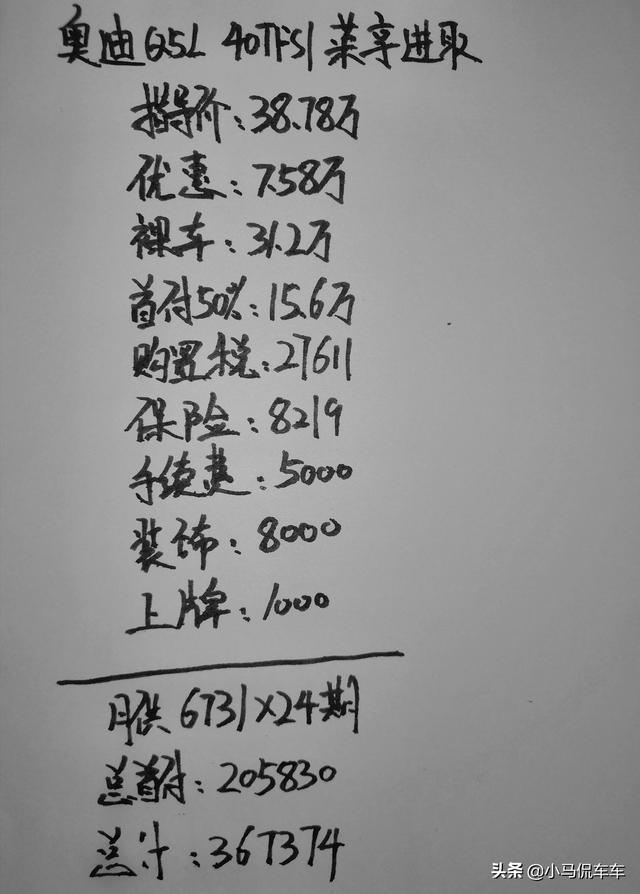 奥迪Q5L 40TFSI 莱享进取
指导价:38.78万
优惠:7.58万
裸车:31.2万
首付50%:15.6万
购置税:27611
保险:8219
手续费:5000
装饰:8000
上牌:1000
月供6731×24期
总首付:205830
总计:367374
头条 @小马侃车车